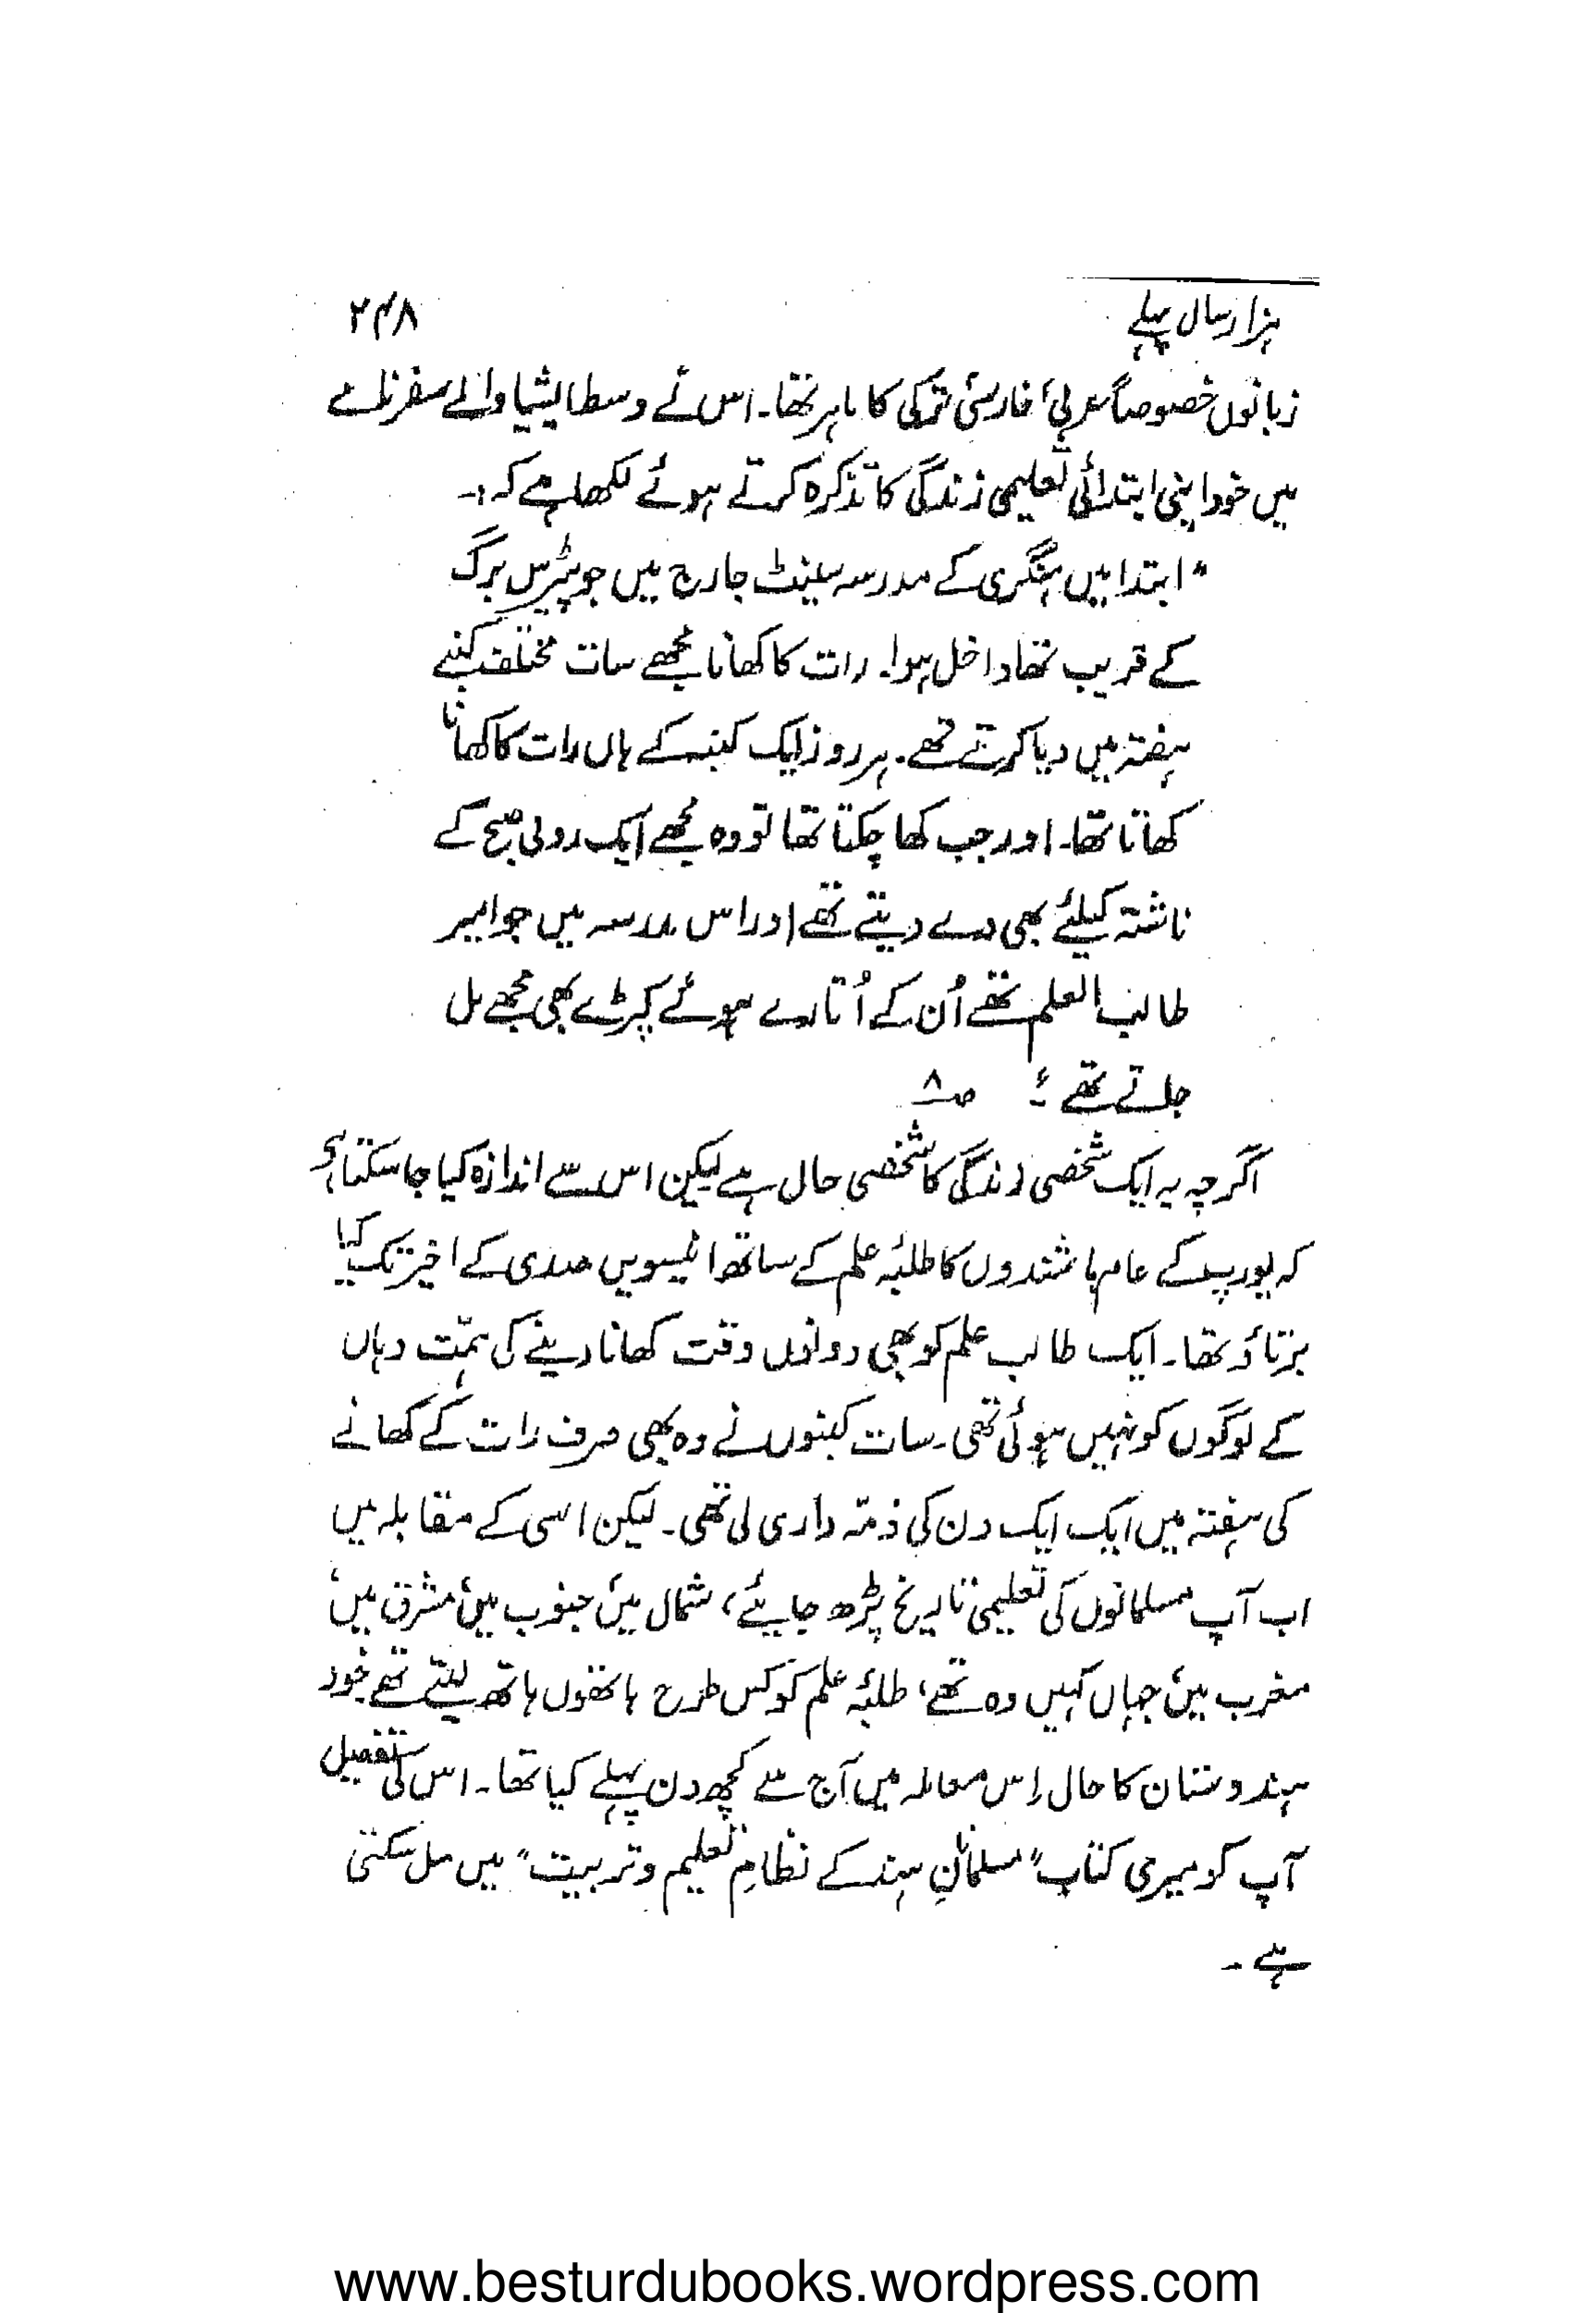 ہزار سال پہلے ۲۴۸
زبانوں خصوصاً عربی، فارسی، ترکی کا ماہر تھا۔ اس نے وسط ایشیا والے سفرنامے
میں خود اپنی ابتدائی تعلیمی زندگی کا تذکرہ کرتے ہوئے لکھا ہے کہ :۔
"ابتدا میں ہنگری کے مدرسہ سینٹ جارج میں جو پٹرس برگ
کے قریب تھا داخل ہوا۔ رات کا کھانا مجھے سات مختلف کنبے
ہفتہ میں دیا کرتے تھے۔ ہر روز ایک کنبہ کے ہاں رات کا کھانا
کھاتا تھا۔ اور جب کھا چکتا تھا تو وہ مجھے ایک روٹی صبح کے
ناشتہ کیلئے بھی دے دیتے تھے اور اس مدرسہ میں جو امیر
طالب العلم تھے اُن کے اُتارے ہوئے کپڑے بھی مجھے مل
جاتے تھے" ؎ ص۸
اگرچہ یہ ایک شخصی زندگی کا شخصی حال ہے لیکن اس سے اندازہ کیا جا سکتا ہے
کہ یورپ کے عام باشندوں کا طلبۂ علم کے ساتھ انیسویں صدی کے اخیر تک کیا
برتاؤ تھا۔ ایک طالب علم کو بھی دونوں وقت کھانا دینے کی ہمّت وہاں
کے لوگوں کو نہیں ہوئی تھی۔ سات کنبوں نے وہ بھی صرف رات کے کھانے
کی ہفتہ میں ایک ایک دن کی ذمّہ داری لی تھی۔ لیکن اسی کے مقابلہ میں
اب آپ مسلمانوں کی تعلیمی تاریخ پڑھ جایئے، شمال میں، جنوب میں، مشرق میں،
مغرب میں، جہاں کہیں وہ تھے، طلبۂ علم کو کس طرح ہاتھوں ہاتھ لیتے تھے خود
ہندوستان کا حال اِس معاملہ میں آج سے کچھ دن پہلے کیا تھا۔ اس کی تفصیل
آپ کو میری کتاب "مسلمانانِ ہند کے نظامِ تعلیم و تربیت" میں مل سکتی
ہے۔
www.besturdubooks.wordpress.com